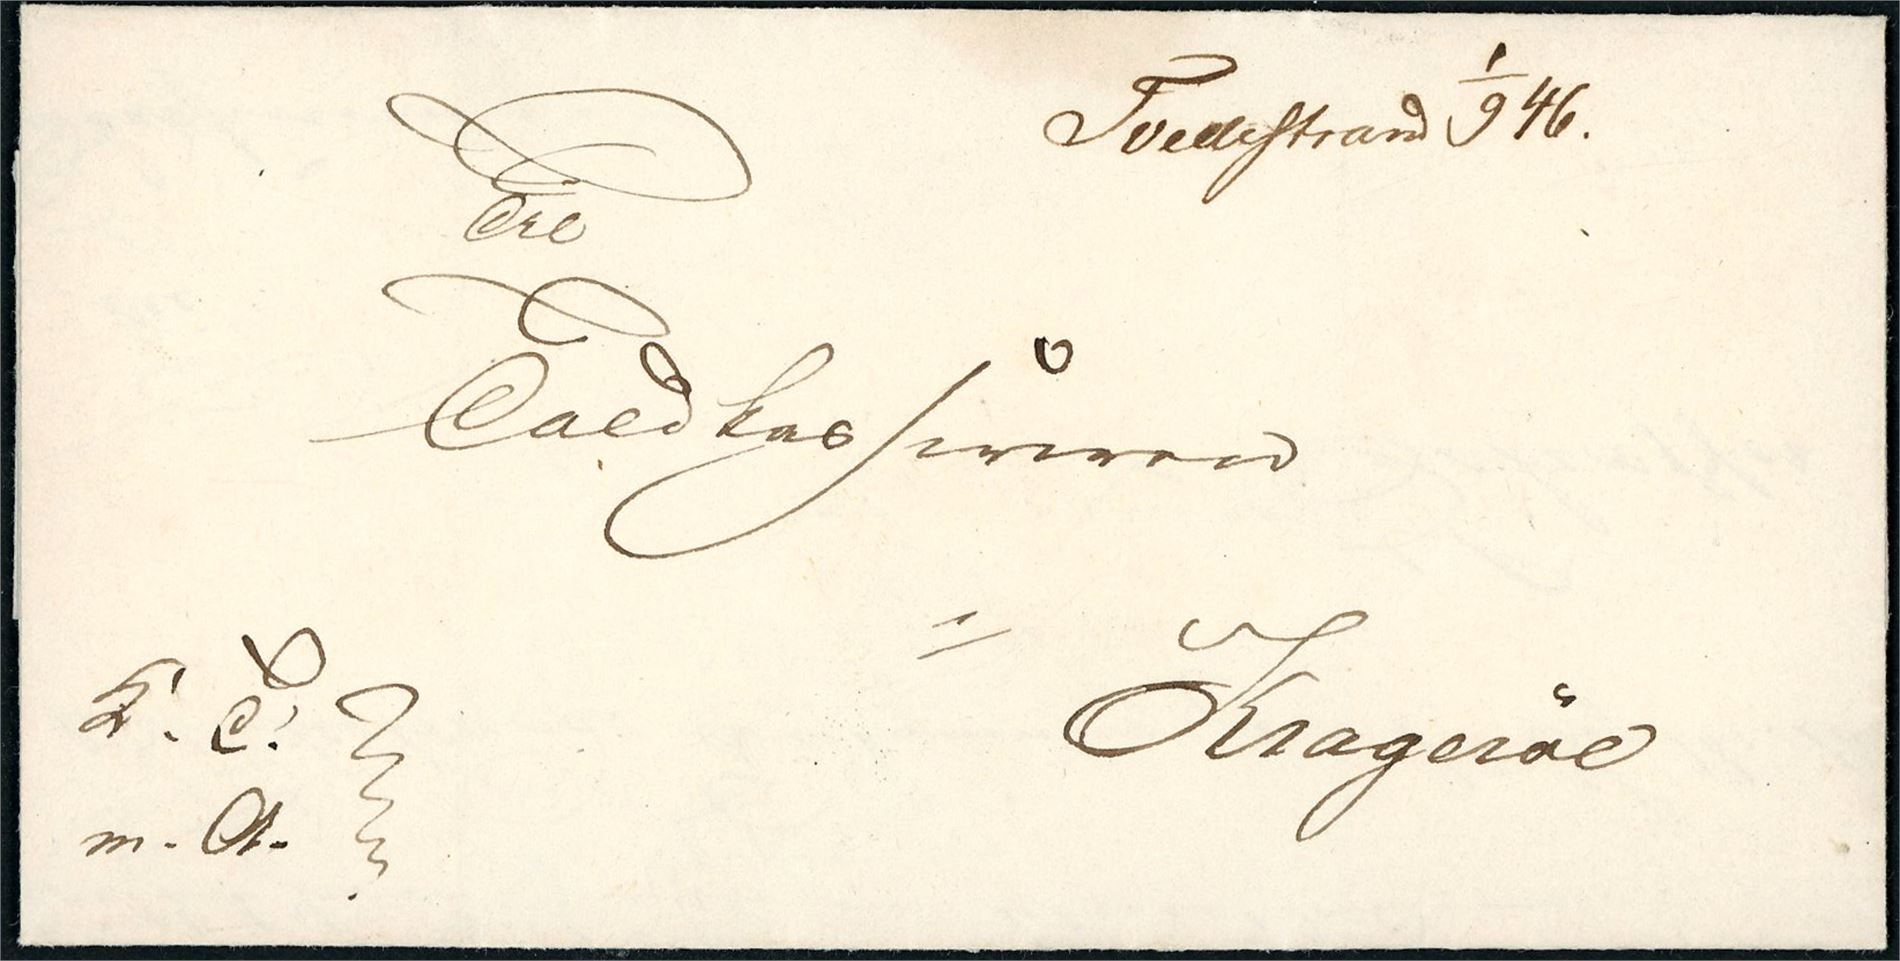 Tvedestrand 1/9 46.
Til
Toldkassereren
i
Kragerøe
K. T.
m. A.